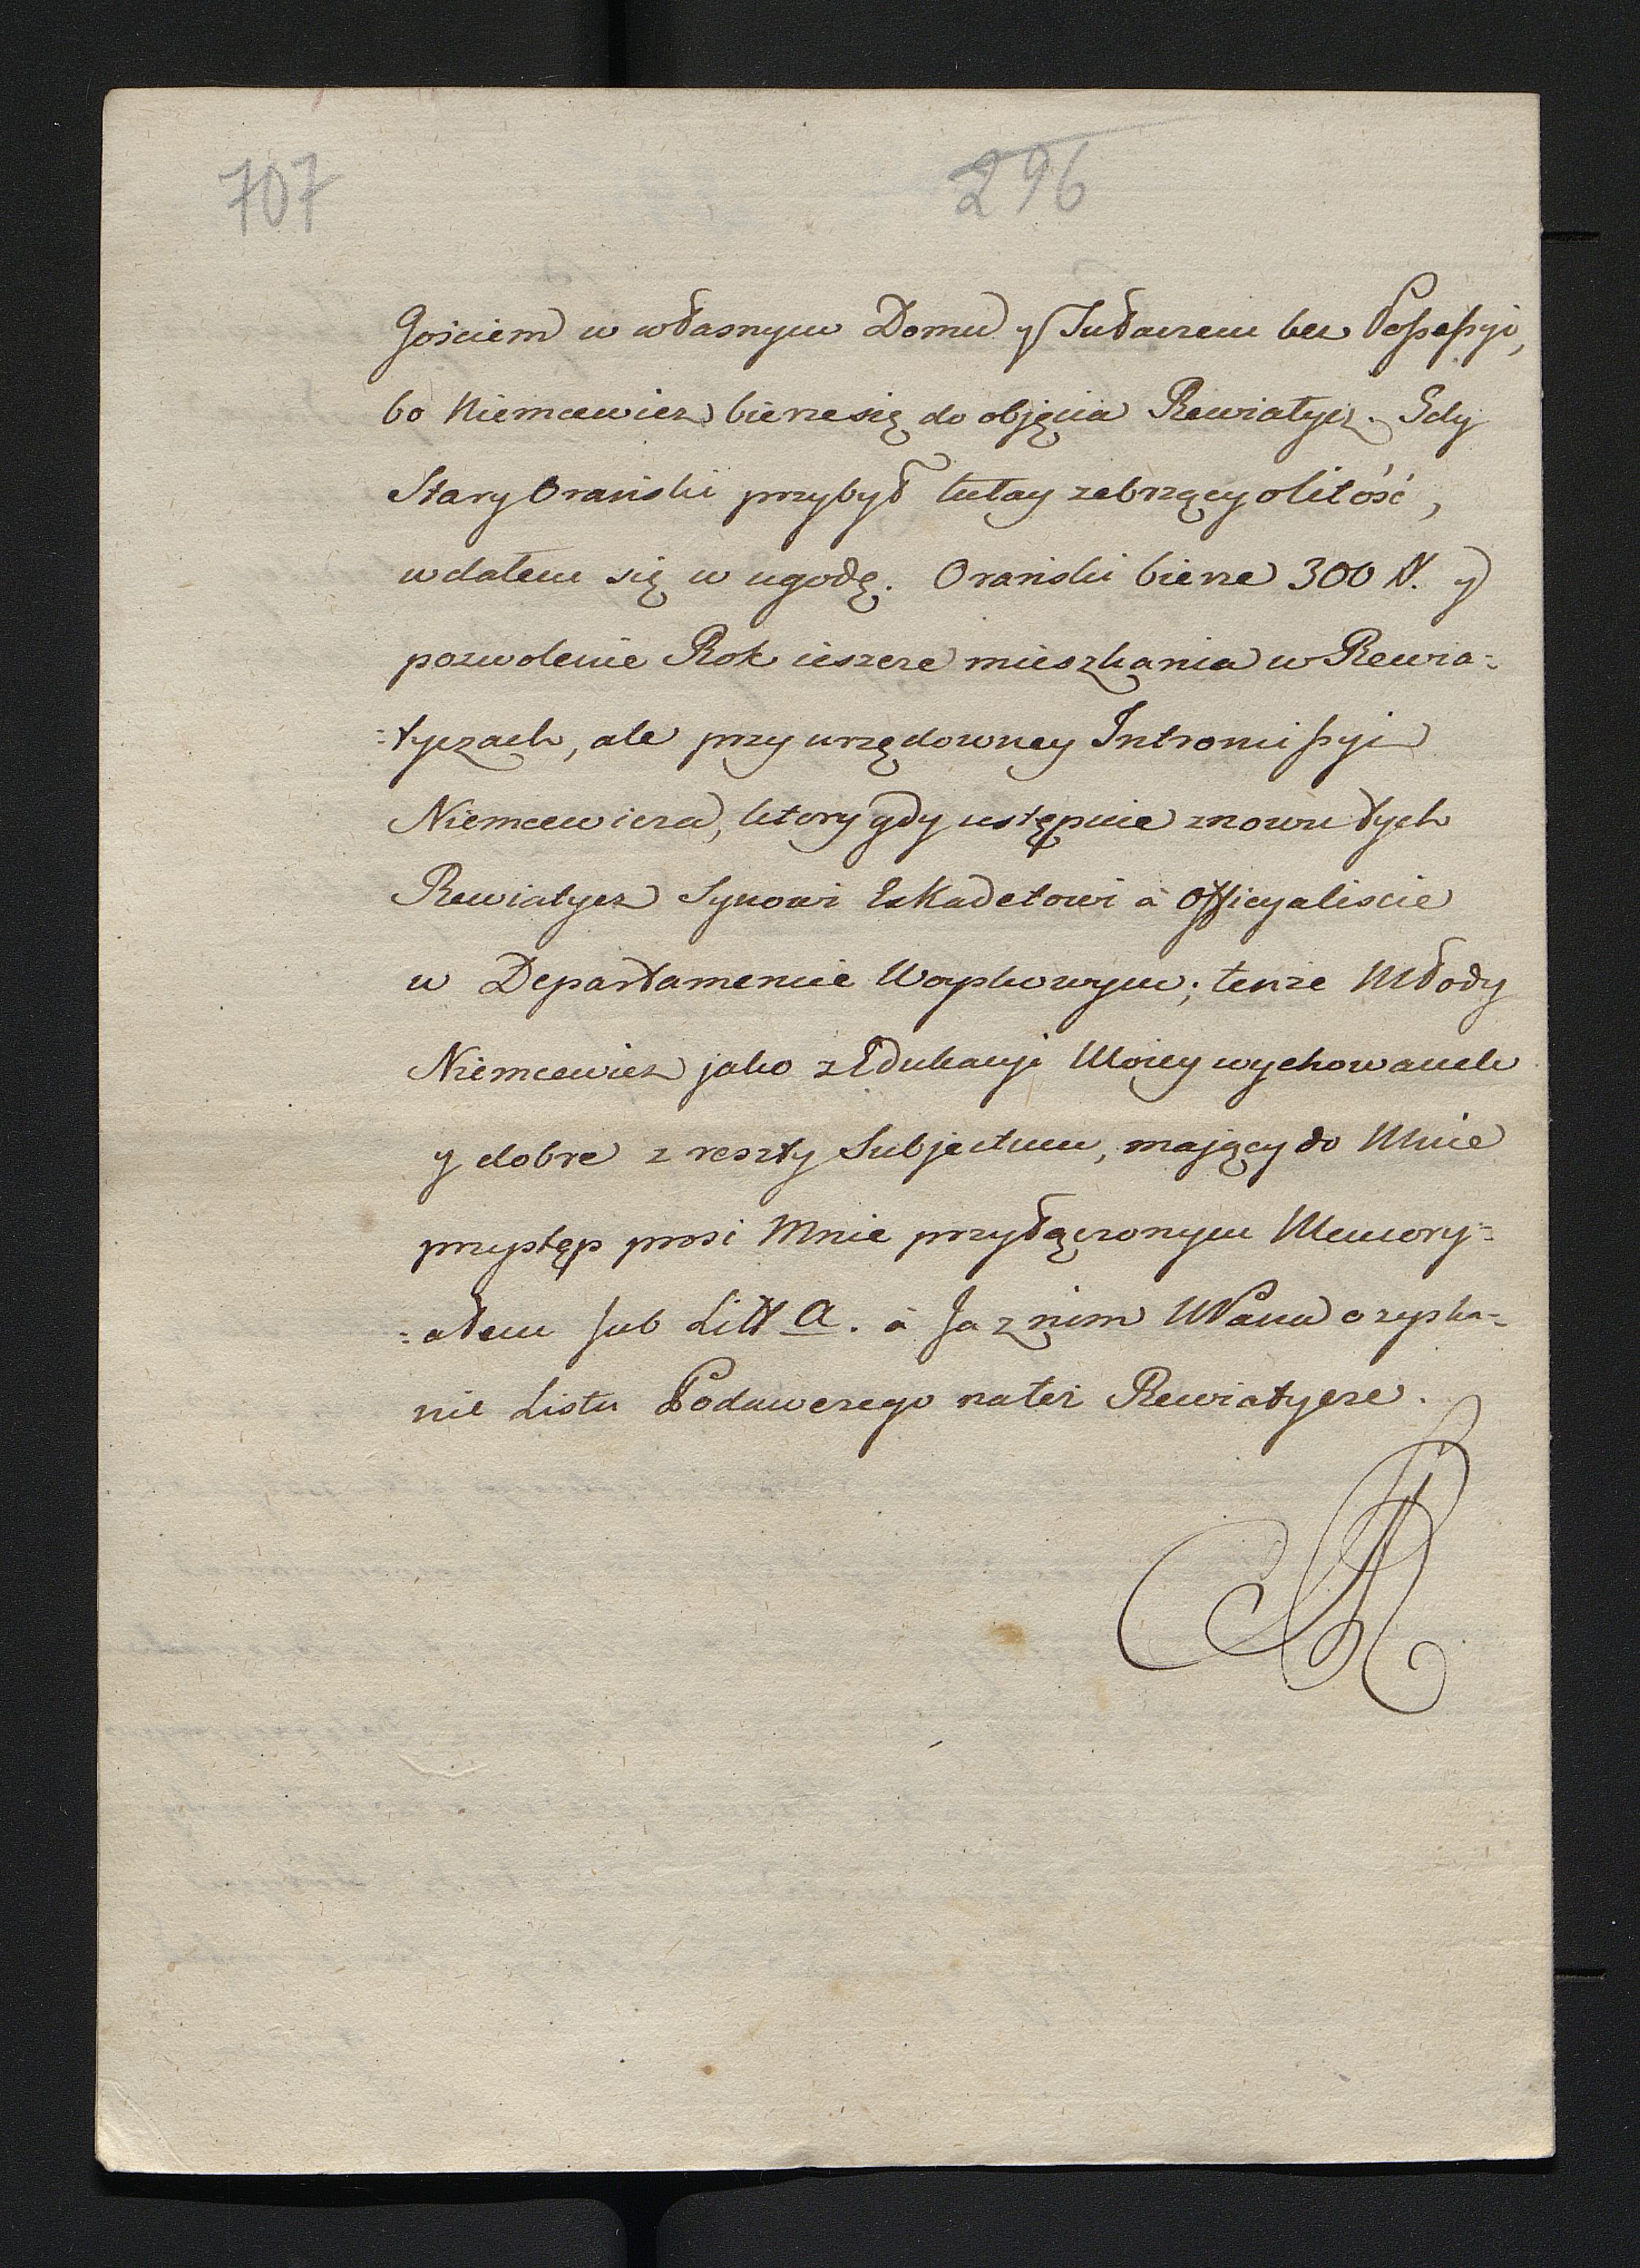 707
296
Gościem w własnym Domu y Tułaczem bez Possessyi,
bo Niemcewicz bierze się do objęcia Rewiatycz. Gdy
Stary Orański przybył tutay żebrzący o litość,
wdałem się w ugodę. Orański bierze 300 #. y
pozwolenie Rok ieszcze mieszkania w Rewia=
=tyczach, ale przy urzędowney Intromissyi
Niemcewicza, ktory gdy ustępuie znowu tych
Rewiatycz Synowi ExKadetowi à Officyaliscie
w Departamencie Woyskowym; tenże Młody
Niemcewicz jako z Edukacyi Moiey wychowanek
y dobre z reszty Subjectum, mający do Mnie
przystęp prosi Mnie przyłączonym Memory=
=ałem sub Litt A. à Ja z nim WPana o zyska=
nie Listu Podawczego na też Rewiatycze.